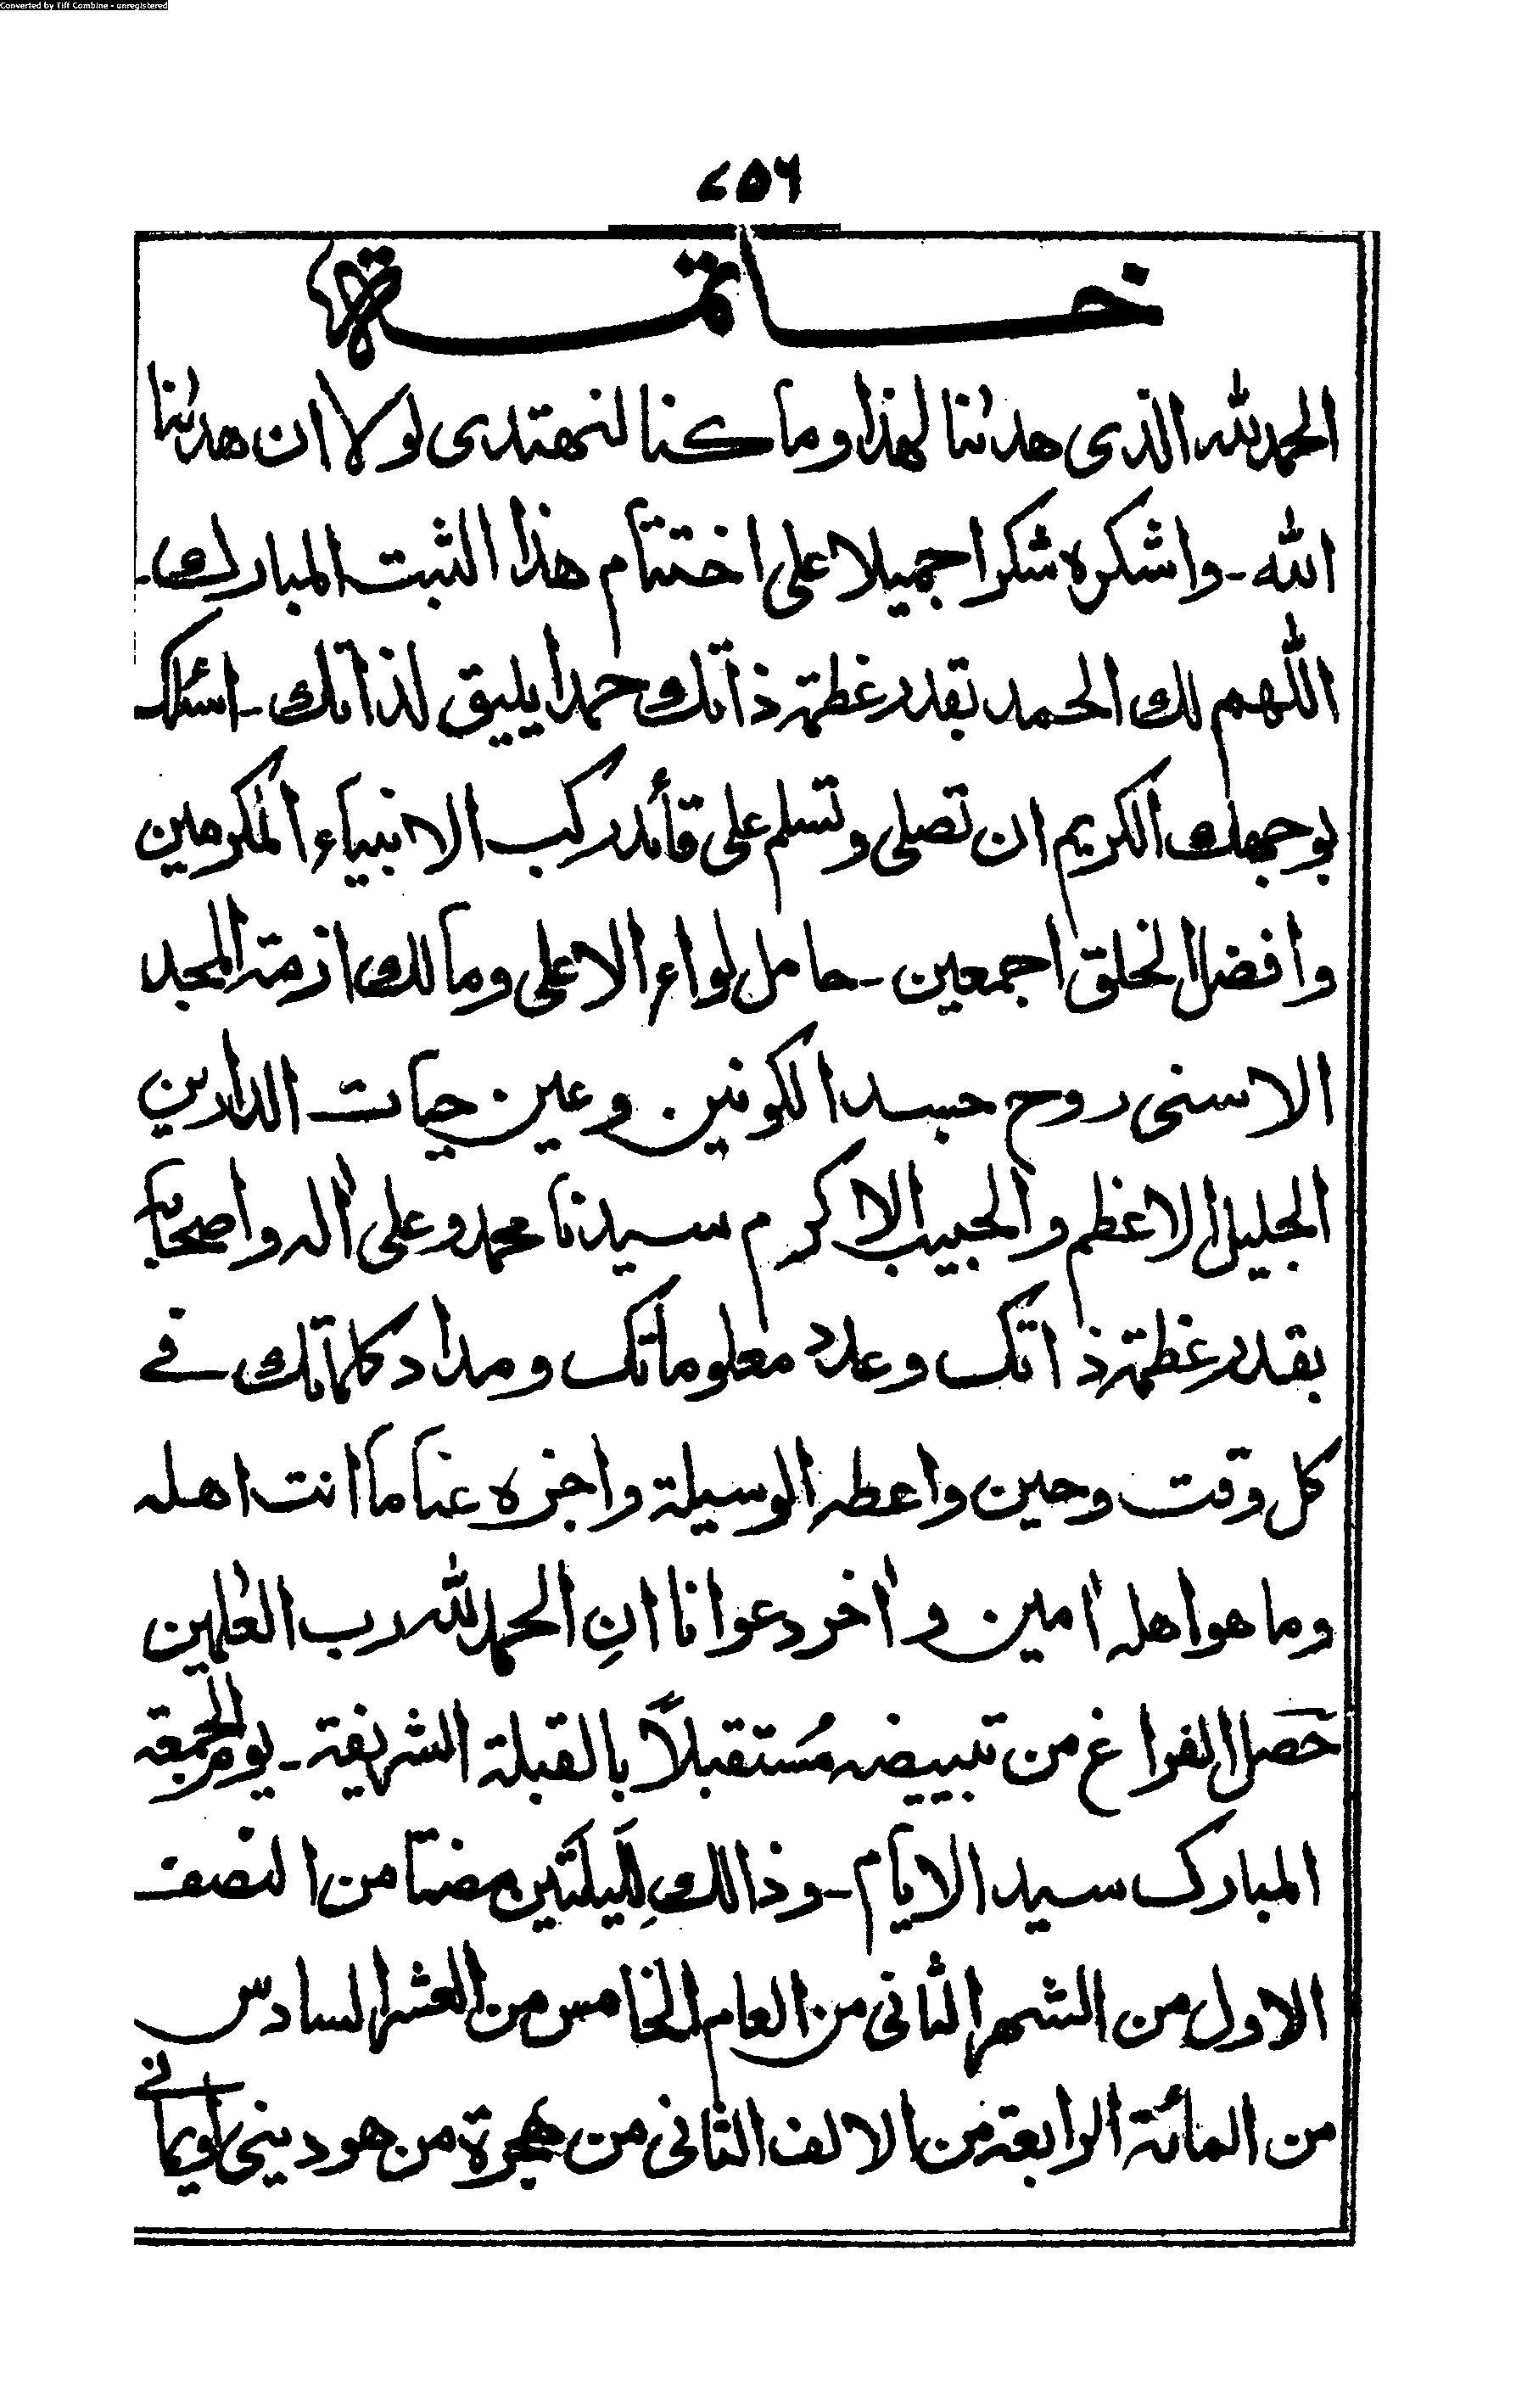 Converted by Tiff Combine - unregistered
٤٥٦
خاتمة
الحمد لله الذى هدٰنا لهذا وما كنا لنهتدى لولا ان هدٰنا
الله - واشكره شكرا جميلا على اختتام هذا الثبت المبارك -
اللهم لك الحمد بقدر عظمة ذاتك حمدا يليق لذاتك - اسئلك
بوجهك الكريم ان تصلى وتسلم على قائد ركب الانبياء المكرمين
وافضل الخلق اجمعين - حامل لواء الاعلى ومالك ازمة المجد
الاسنى روح جسد الكونين وعين حيات الدارين
الجليل الاعظم والحبيب الاكرم سيدنا محمد وعلى اٰله واصحابه
بقدر عظمة ذاتك وعدد معلوماتك ومداد كلماتك فے
كل وقت وحين واعطه الوسيلة واجزه عنا ما انت اهله
وما هو اهله اٰمين واٰخر دعوانا انِ الحمد لله رب العٰلمين
حَصل الفراغ من تبييضه مُستقبلاً بالقبلة الشريفة - يوم الجمعة
المبارك سيد الايام - وذالك لِلَيلتَين مضتا من النصف
الاول من الشهر الثانى من العام الخامس من العشر السادس
من المائة الرابعة من الالف الثانى من هجرة من هو دينى وايمانى